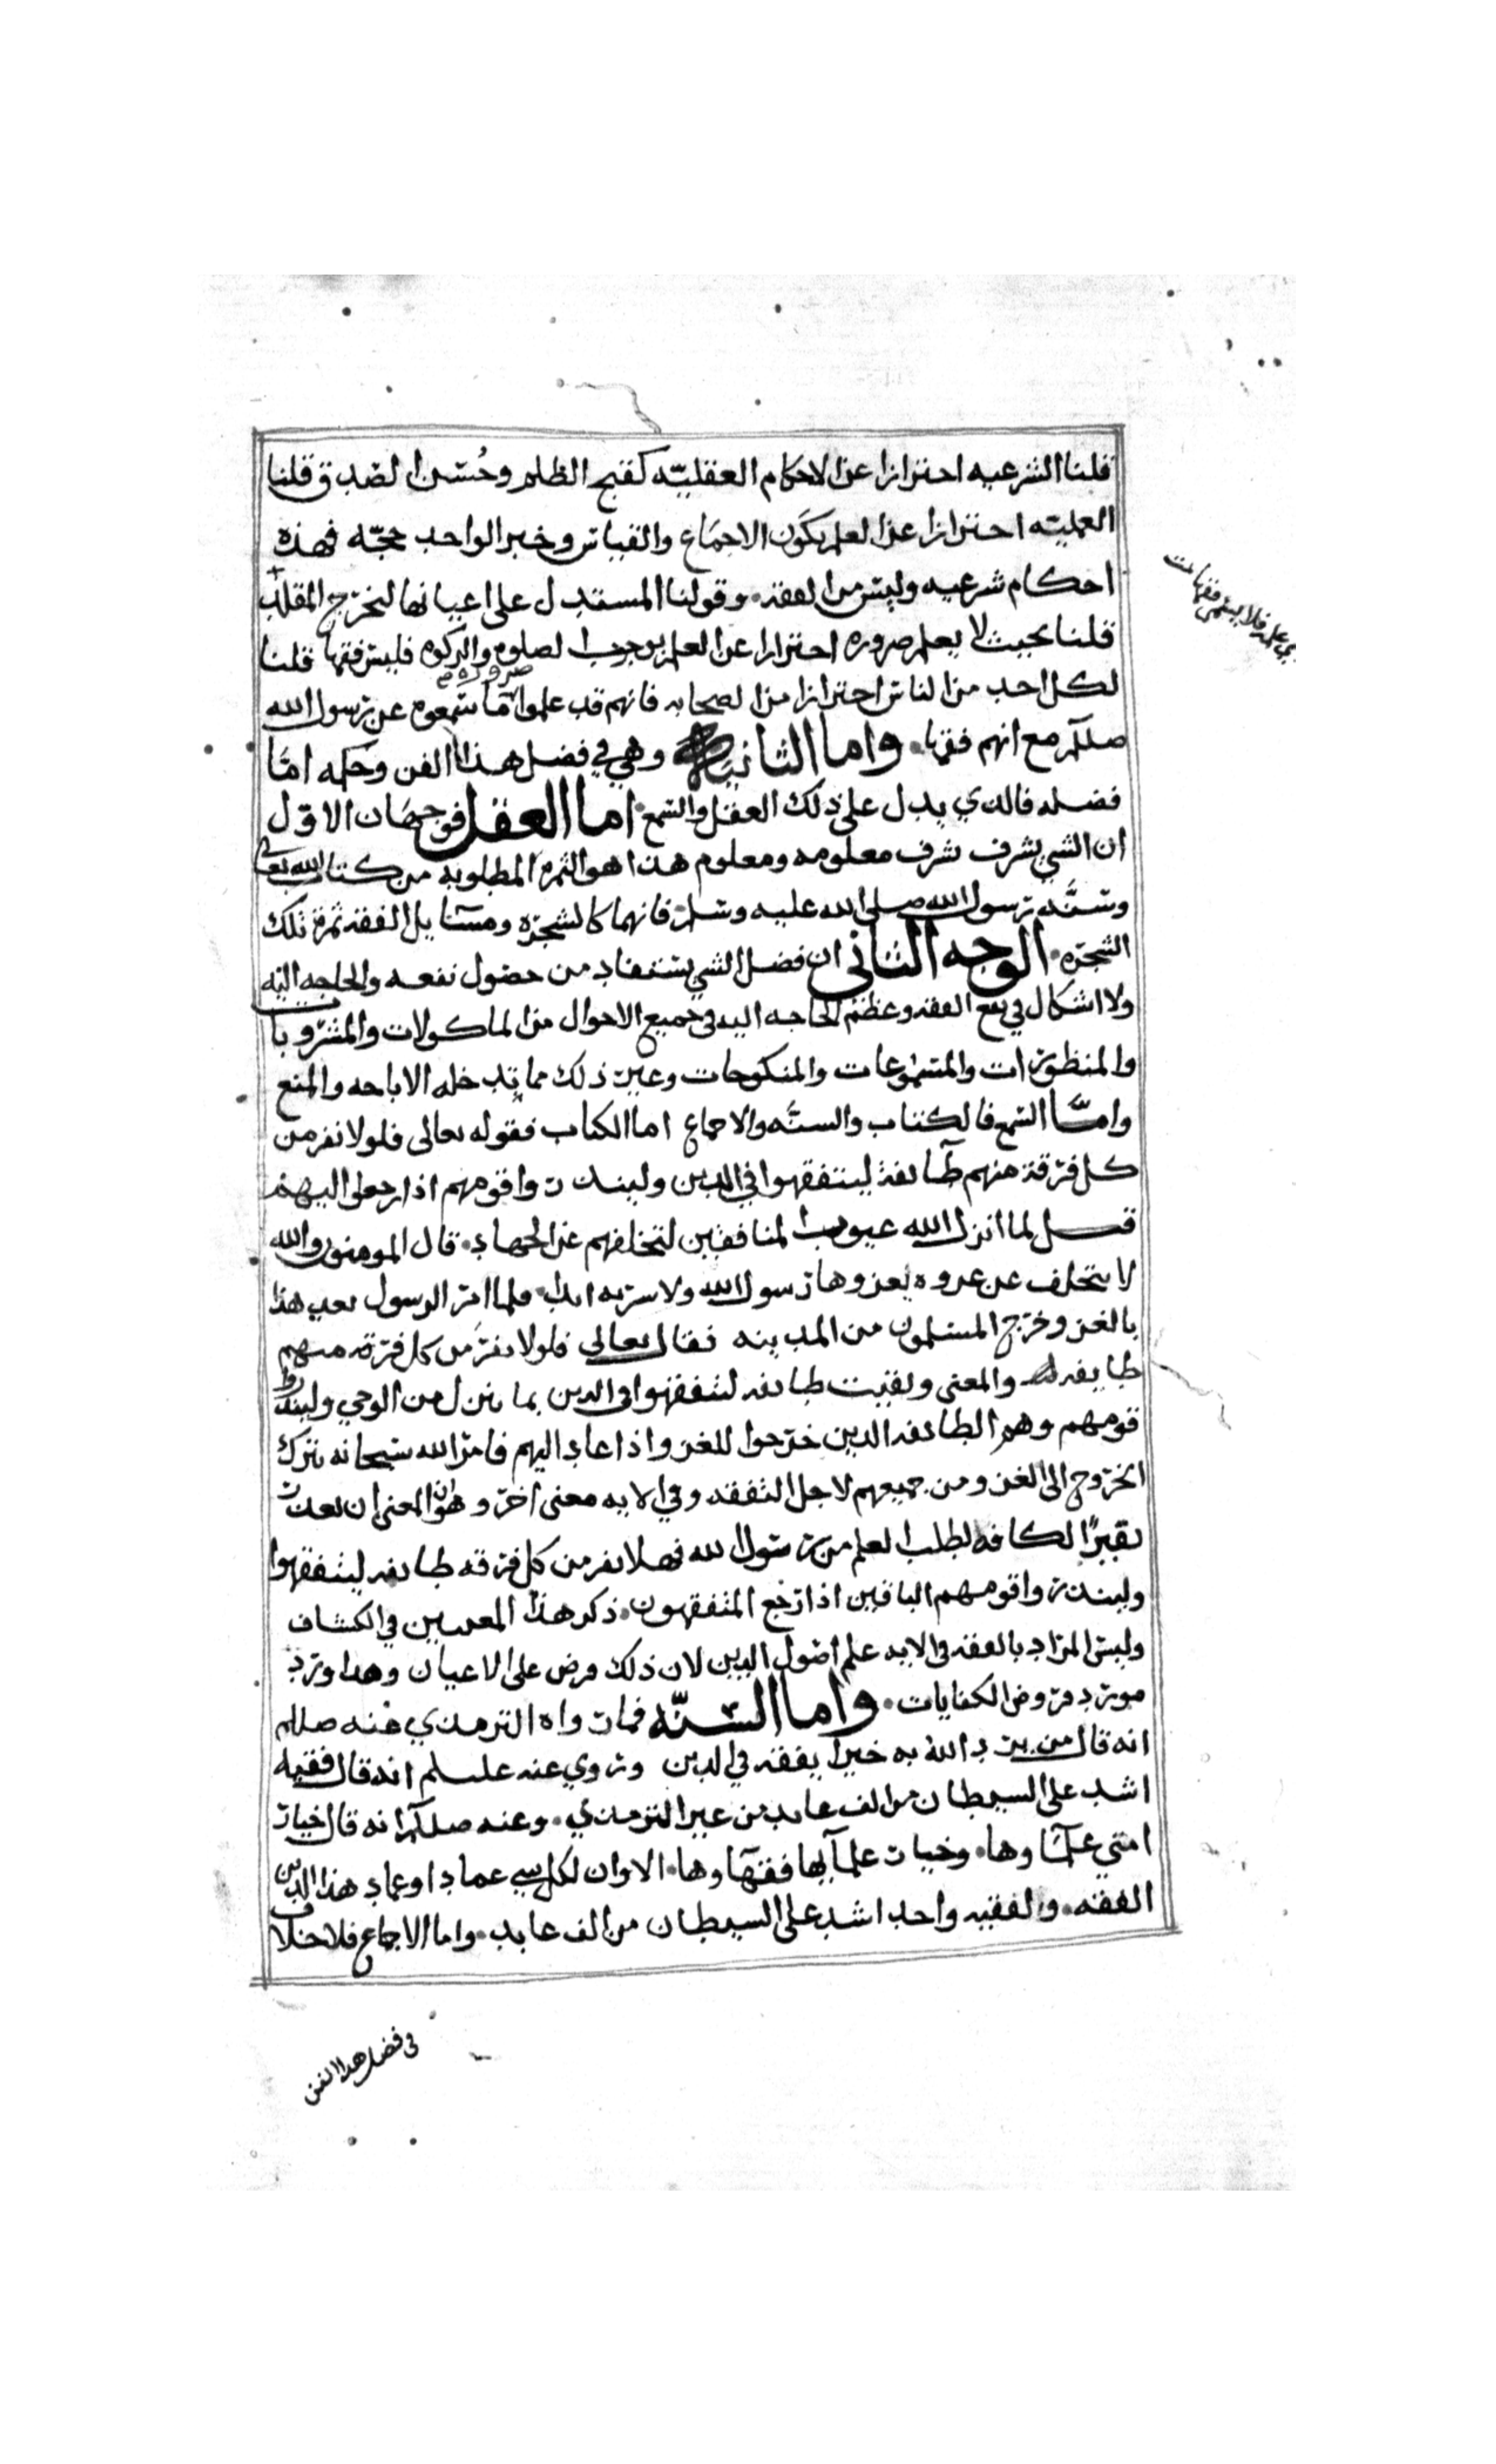 قلنا الشرعيه احترازا عن الاحكام العقليّه كقبح الظلم وحُسن الصدق قلنا
العمليّه احترازا عن العلم بكون الاجماع والقياس وخبر الواحد حجّه فهذه
احكام شرعيه وليس من الفقه. وقولنا المستدل على اعيانها لتخرج المقلد
قلنا بحيث لا يعلم ضروره احترازا عن العلم بوجوب الصلوه والزكوه فليس فقها قلنا
لكل احد من الناس احترازا من الصحابه فانهم قد علموا ما سمعوه عن رسول الله
ضروره
صللم مع انهم فقها. واما الثانيه وهي في فضل هذا الفن وحكمه امّا
فضله فالذي يدل على ذلك العقل والسمع. اما العقل فوجهان الاوّل
ان الشي يشرف بشرف معلومه ومعلوم هذا هو الثمره المطلوبه من كتاب الله تعالى
وسنَّه رسول الله صلى الله عليه وسلم. فانهما كالشجره ومسايل الفقه ثمرة تلك
الشجره. الوجه الثانى ان فضل الشي يستفاد من حصول نفعه والحاجه اليه
ولا اشكال في نفع الفقه وعظم الحاجه اليه في جميع الاحوال من الماكولات والمشروبات
والمنظورات والمسموعات والمنكوحات وغير ذلك مما تدخله الاباحه والمنع
وامّا السمع فالكتاب والسنَّه والاجماع اما الكتاب فقوله تعالى فلولا نفر من
كل فرقة منهم طايفة ليتفقهوا في الدين ولينذروا قومهم اذا رجعوا اليهم
قيل لما انزل الله عيوب المنافقين لتخلفهم عن الجهاد. قال المومنون والله
لا نتخلف عن غزوه يغزوها رسول الله ولا سريه ابدا. فلما امر الرسول بعد هذا
بالغزو خرج المسلمون من المدينه فقال تعالى فلولا نفر من كل فرقة منهم
طايفه والمعنى وبقيت طايفه ليتفقهوا في الدين بما نزل من الوحي ولينذروا
قومهم وهم الطايفه الذين خرجوا للغزو اذا عادوا اليهم فامر الله سبحانه بترك
الخروج الى الغزو من جميعهم لاجل التفقه وفي الايه معنى اخر وهو ان المعنى ان تعذر
نفيرُ الكافه لطلب العلم من رسول الله فهلا نفر من كل فرقه طايفه ليتفقهوا
ولينذروا قومهم الباقين اذا رجع المتفقهون. ذكر هذا المعنيين في الكشاف
وليس المراد بالفقه في الايه علم اصول الدين لان ذلك فرض على الاعيان وهذا ورد
مورد فروض الكفايات. واما السنّه فما رواه الترمذي عنه صللم
انه قال من يرد الله به خيرا يفقهه في الدين وروي عنه علسلم انه قال فقيه
اشد على الشيطان من الف عابد من غير الترمذي. وعنه صللم انه قال خيار
امتي علماوها. وخيار علمآيها فقهاوها. الا وان لكل شي عمادا وعماد هذا الدين
الفقه. والفقيه واحد اشد على الشيطان من الف عابد. واما الاجماع فلا خلاف
في فضل هذا الفن